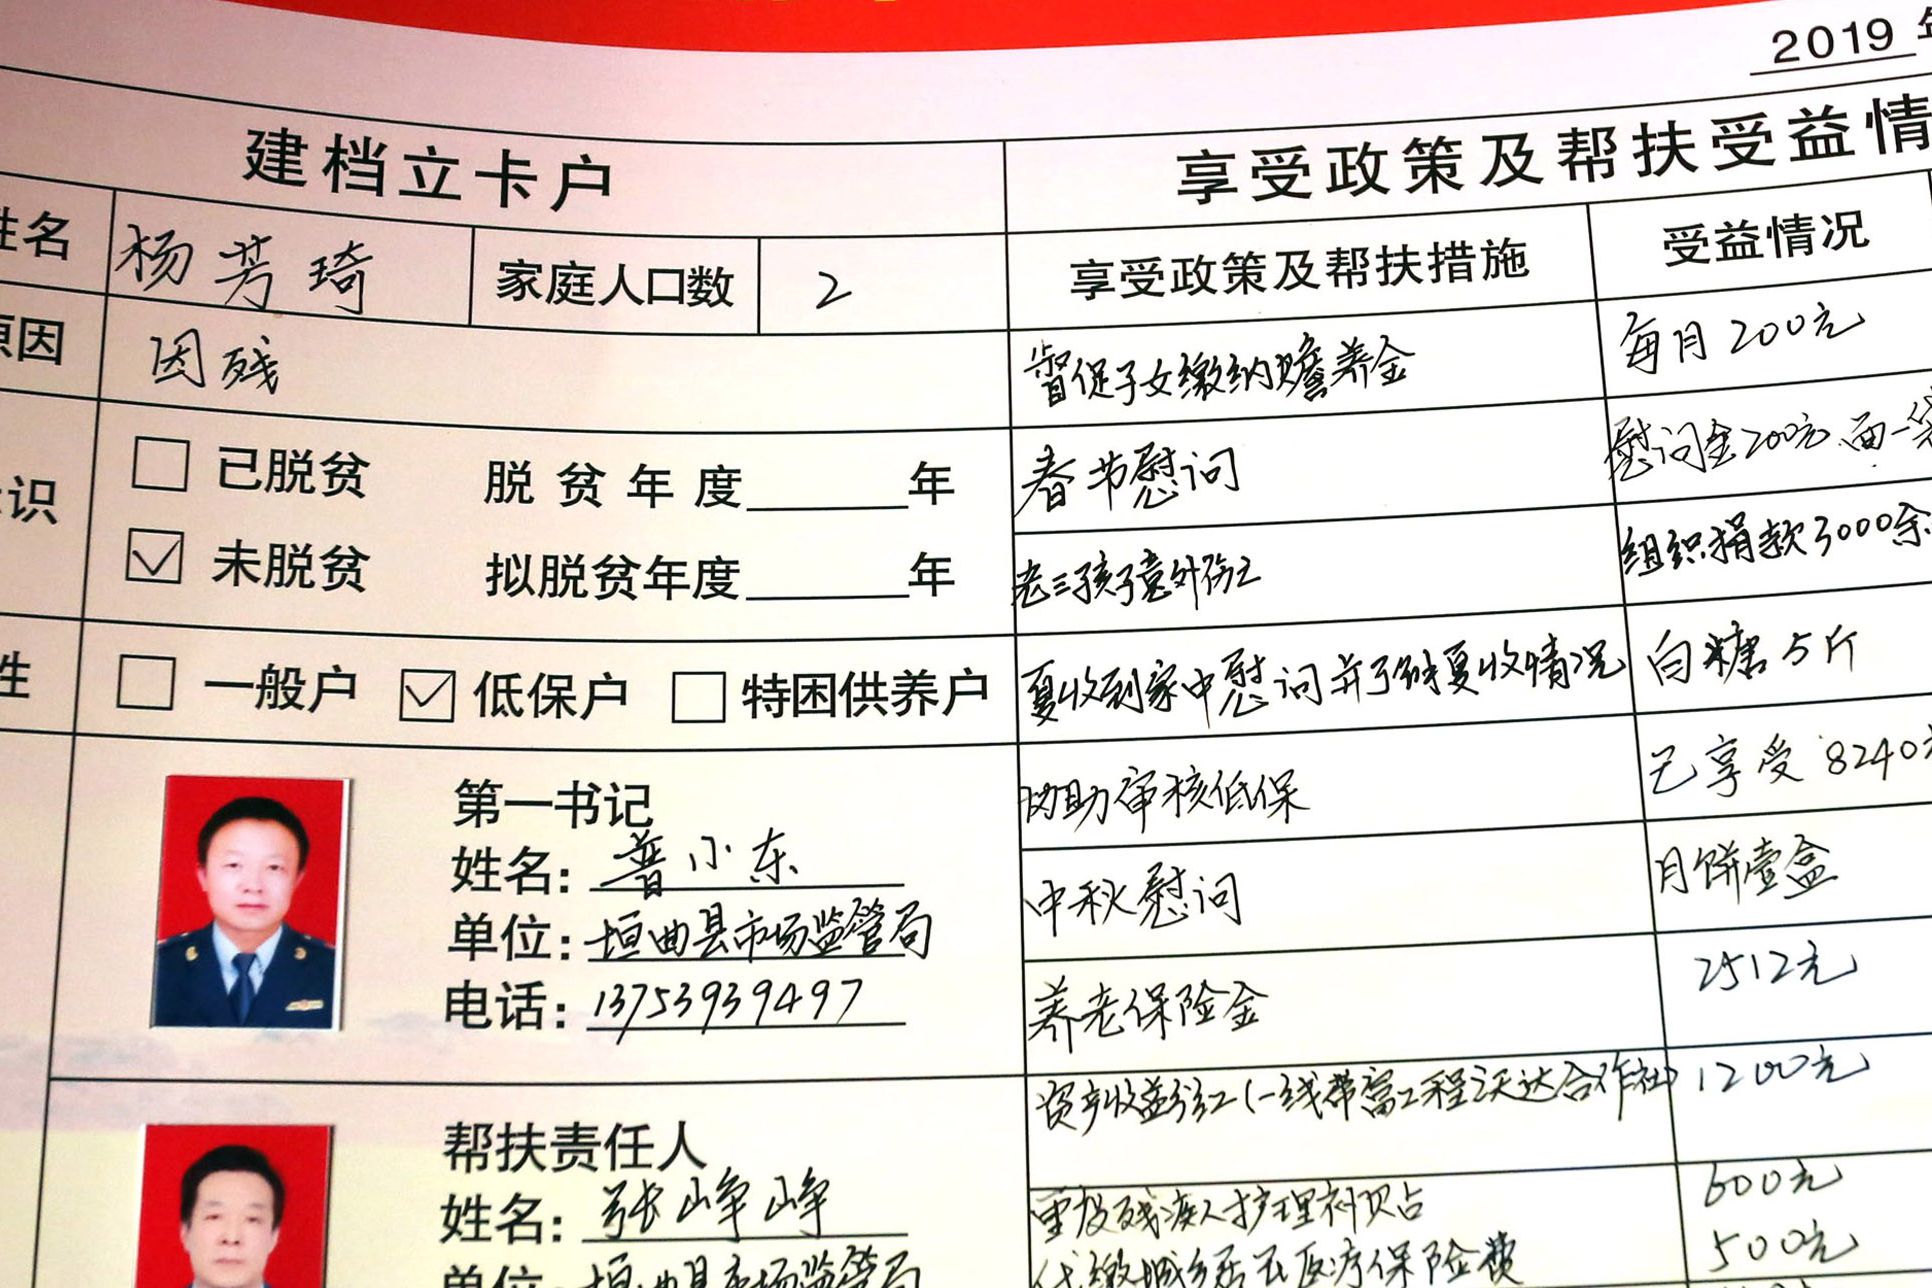 2019 年
建档立卡户
享受政策及帮扶受益情
姓名 杨芳琦 家庭人口数 2
享受政策及帮扶措施 受益情况
原因 因残
督促子女缴纳赡养金 每月200元
识
已脱贫 脱贫年度 年
春节慰问 慰问金200元 面一袋
未脱贫 拟脱贫年度 年
老三孩子意外伤亡 组织捐款3000余
性 一般户 低保户 特困供养户
夏收到家中慰问并了解夏收情况 白糖5斤
协助审核低保 已享受8240元
中秋慰问 月饼壹盒
养老保险金 2512元
资产收益分红(一线带富工程沃达合作社) 1200元
重度残疾人护理补贴 600元
代缴城乡居民医疗保险费 500元
第一书记
姓名:普小东
单位:垣曲县市场监管局
电话:13753939497
帮扶责任人
姓名:张峥峥
单位:垣曲县市场监管局